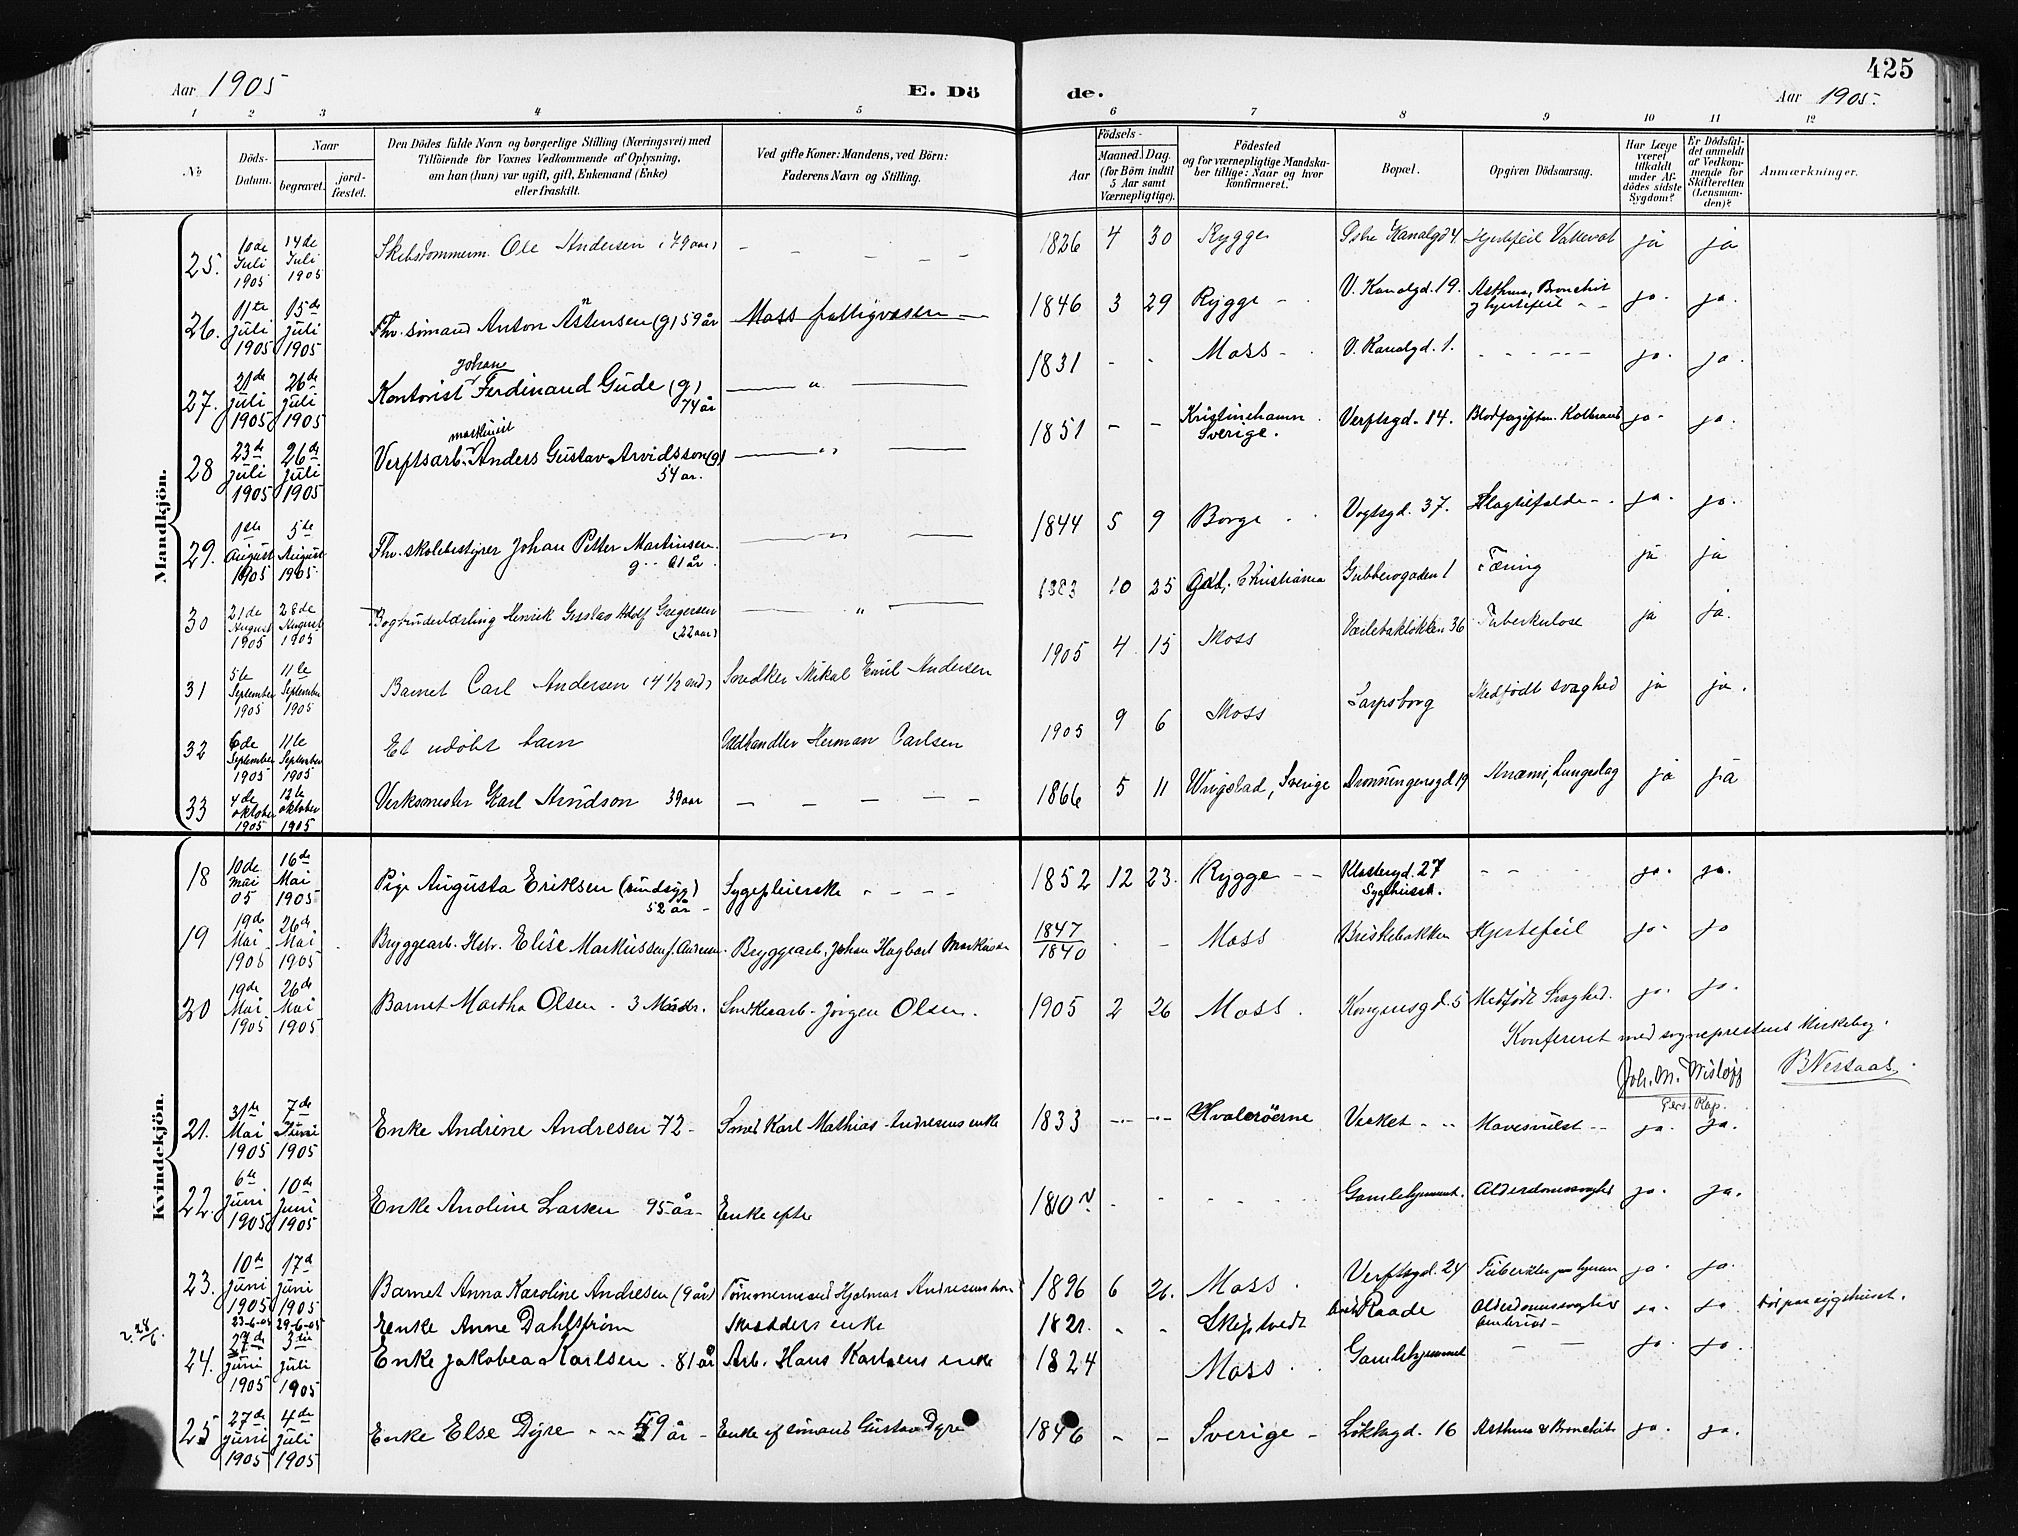 Aar 1905
E. Dö
de.
425
Aar 1905.
1 2 3 4 5 6 7 8 9 10 11 12
No
Döds-
Datum.
Naar
begravet. jord-
fæstet.
Den Dödes fulde Navn og borgerlige Stilling (Næringsvei) med
Tilföiende for Voxnes Vedkommende af Oplysning,
om han (hun) var ugift, gift, Enkemand (Enke)
eller fraskilt.
Ved gifte Koner: Mandens, ved Börn:
Faderens Navn og Stilling.
Födsels-
Aar
Maaned. Dag.
(for Börn indtil
5 Aar samt
Værnepligtige).
Födested
og for værnepligtige Mandska-
ber tillige: Naar og hvor
konfirmeret.
Bopæl.
Opgiven Dödsaarsag.
Har Læge
været
tilkaldt
under Af-
dödes sidste
Sygdom?
Er Dödsfal-
det anmeldt
af Vedkom-
mende for
Skifteretten
(Lensman-
den)?
Anmærkninger.
Mandkjön.
25. 10de Juli 1905 14de Juli 1905 Ole Andersen (79 aar) - 1826 4 30 Rygge Kanalgd 4 ja ja
26. 11te juli 1905 15de juli 1905 Fhv. sömand Anton Astensen (g) 59 år Moss fattigvæsen 1846 3 29 Rygge V. Kanalgd. 19. Asthma, Bronchit & hjertefeil ja. ja.
27. 21de juli 1905 26de juli 1905 Kontorist Johan Ferdinand Gude (g) 74 år " 1831 - - Moss V. Kanalgd. 1. - ja. ja.
28 23de juli 1905 26de juli 1905 Verftsarb. maskinist Anders Gustav Arvidsson (g) 54 år. " 1851 - - Kristinehamn Sverige. Verftsgd. 14. ja. ja.
29. 1ste August 1905 5te August 1905 Fhv. skolebestyrer Johan Petter Martinsen. g. 61 år. " 1844 5 9 Borge Vogtsgd. 37. Slagtilfælde ja. ja.
30 21de August 1905 28de August 1905 Henrik Gustav Adolf Gregersen (22 aar) " 1883 10 25 Christiania Gubberogaden 1 Tæring ja ja
31 5te September 1905 11te September 1905 Barnet Carl Andersen (4 1/2 md) Snedker Mikal Emil Andersen 1905 4 15 Moss Værlebakløkken 36 Tuberkulose ja ja.
32 6de September 1905 11te September 1905 Et udöbt barn Uldhandler Herman Carlsen 1905 9 6 Moss Sarpsborg Medfödt svaghed ja ja.
33 4de oktober 1905 12te oktober 1905 Verksmester Karl Arvidson 39 aar - 1866 5 11 Wrigstad, Sverige Dronningensgd 19 Anæmi, Lungeslag ja ja
Kvindekjön.
18 10de mai 05 16de Mai 1905 Pige Augusta Eriksen (sindsyg) 52 år Sygepleierske 1852 12 23. Rygge Klostergd. 27 Sygehuset. - ja. ja.
19 19de Mai 1905 26de Mai 1905 Bryggearb. Hstr. Elise Markussen f. Andersen. Bryggearb. Johan Hagbart Markussen 1847 1840 - Moss Briskebakken Hjertefeil ja. ja
20 19de Mai 1905 26de Mai 1905 Barnet Martha Olsen. 3 Mdr. Snedkerarb. Jörgen Olsen. 1905 2 26 Moss. Kongensgd. 5 Medfödt Svaghed. ja. ja.
Konfereret med sogneprestens kirkebog.
Joh. M. Wisløff
Pers. Kap.
B Nestaas.
21. 31te Mai 1905 7de Juni 1905 Enke Andrine Andresen 72 - Smed Karl Mathias Andresens enke 1833 - - Hvaløerne Verket Mavesvulst ja. ja.
22. 6te juni 1905 10de juni 1905 Enke Anoline Larsen 95 år - Enke efter 1810 - - Gamlehjemmet. Alderdomssvaghet ja. ja.
23. 10de juni 1905 17de juni 1905 Barnet Anna Karoline Andresen (9 år) Tömmermand Hjalmar Andresens barn 1896 6 26. Moss. Verftsgd. 24 ja. ja.
23-6-05 29-6-05 Enke Anne Dahlström Skredders enke 1821. - - Skiptvedt Raade Alderdomssvaghet ja. ja. död paa sygehuset.
24. 27de juni 1905 3die juli 1905 Enke Jakobea Karlsen. 81 år Arb. Hans Karlsens enke 1824 Moss Gamlehjemmet - ja. ja.
25 27de juni 1905 4de juli 1905 Enke Else Dyre 59 år - Enke ef sömand Gustav Dyre 1846 - - Sverige Löktegd. 16 Asthma & Bronchit ja. ja.